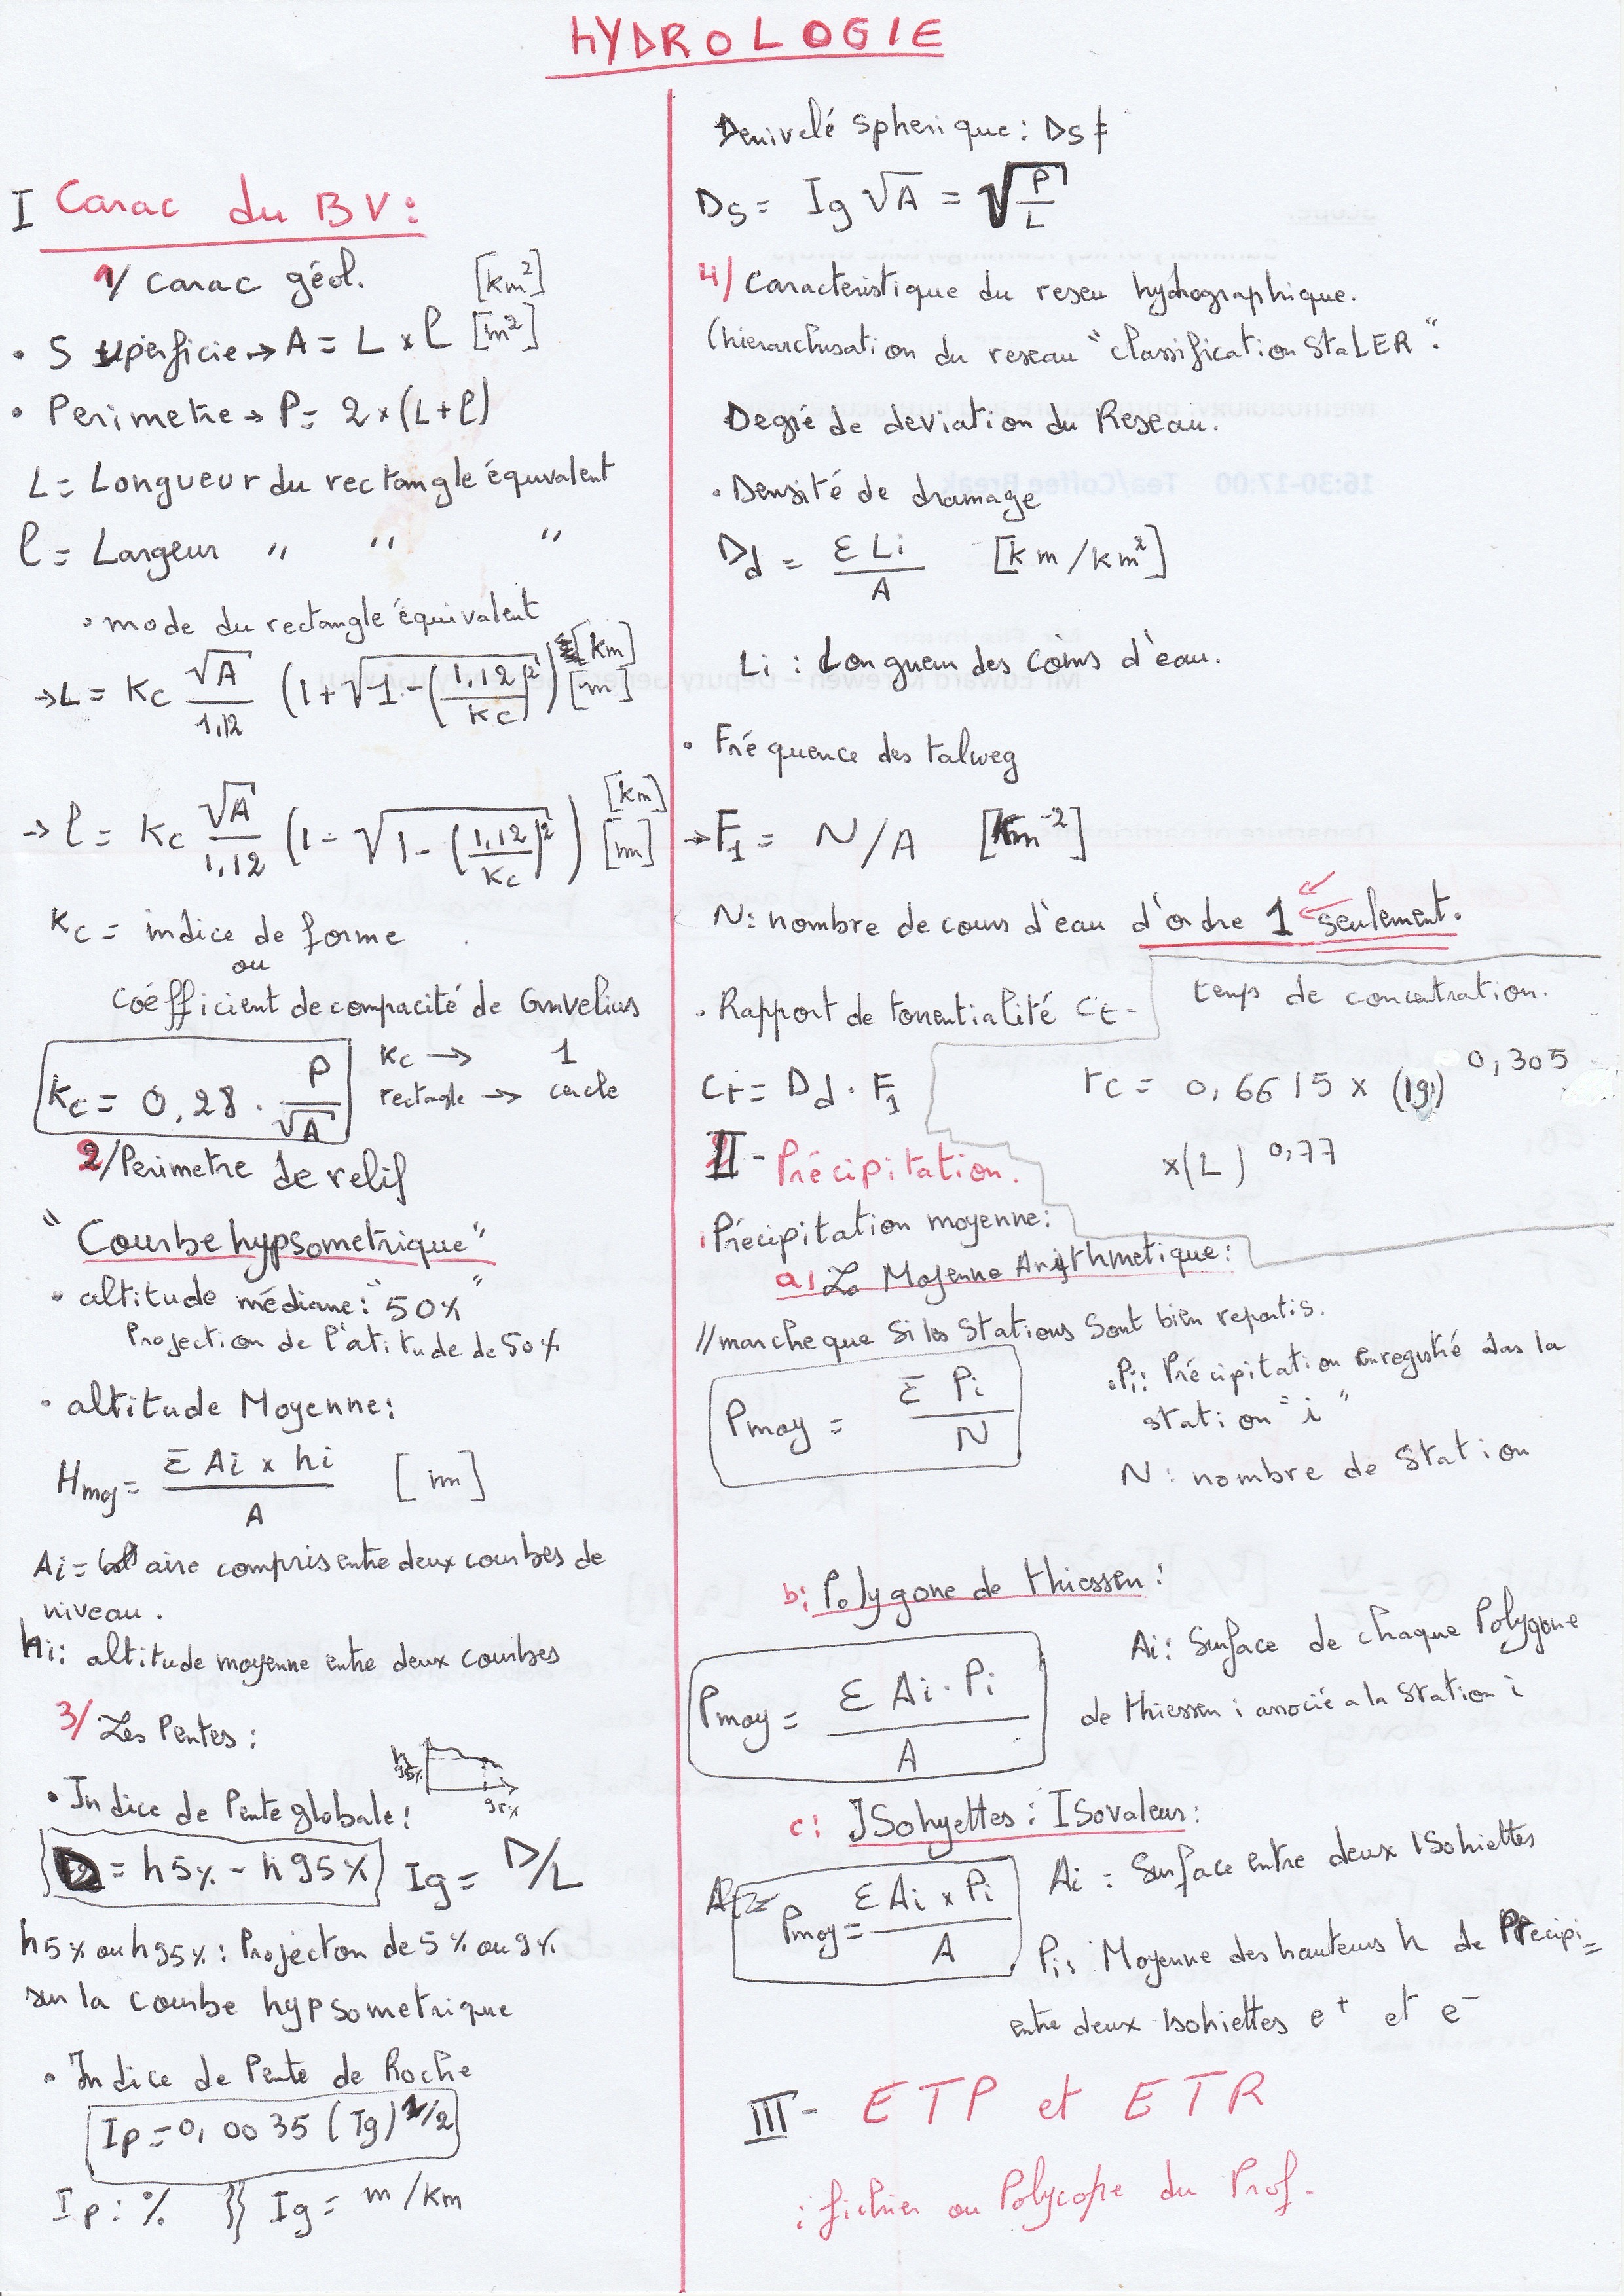 HYDROLOGIE
I Carac du BV:
1/ carac géol. [km²]
• Superficie → A = L x l [m²]
• Perimetre → P = 2 x (L + l)
L = Longueur du rectangle équivalent
l = Largeur " " "
• mode du rectangle équivalent
→ L = Kc √A/1,12 (1 + √(1 - (1,12/Kc)²)) [km] [m]
→ l = Kc √A/1,12 (1 - √(1 - (1,12/Kc)²)) [km] [m]
Kc = indice de forme
ou
coéfficient de compacité de Gravelius
Kc = 0,28 . P/√A
Kc → 1
rectangle → cercle
2/ Perimetre de relif
"Courbe hypsometrique"
• altitude médiane: "50%"
Projection de l'atitude de 50%
• altitude Moyenne:
Hmoy = Σ Ai x hi / A [m]
Ai = aire compris entre deux courbes de
niveau.
hi: altitude moyenne entre deux courbes
3/ Les Pentes:
h
95%
95%
• Indice de Pente globale:
D = h5% - h95% Ig = D/L
h5% ou h95%: Projecton de 5% ou 9%
sur la courbe hypsometrique
• Indice de Pente de Roche
Ip = 0,0035 (Ig)^1/2
Ip: % }} Ig = m/km
Denivelé spherique: Ds
Ds = Ig √A = √(P/L)
4/ Caracteristique du reseu hydrographique.
(hierarchisation du reseau "classification StaLER".
Degré de deviation du Reseau.
• Densité de drainage
Dd = Σ Li / A [km/km²]
Li : Longueur des coûrs d'eau.
• Fréquence des talweg
→ F1 = N/A [Km⁻²]
N: nombre de cours d'eau d'ordre 1 seulement.
• Rapport de torrentialité Ct -
Ct = Dd . F1
temps de concentration.
tc = 0,6615 x (Ig)^0,305
x (L)^0,77
II - Précipitation.
Précipitation moyenne:
a) La Moyenne Arithmetique:
// marche que si les Stations Sont bien repartis.
Pmoy = Σ Pi / N
• Pi: Précipitation enregistré dans la
station "i"
N: nombre de Station
b: Polygone de thiessen:
Pmoy = Σ Ai . Pi / A
Ai: Surface de chaque Polygone
de thiessen i associé a la Station i
c: ISohyettes: ISovaleur:
Pmoy = Σ Ai x Pi / A
Ai : Surface entre deux ISohiettes
Pi: Moyenne des hauteurs h de Précipi=
entre deux Isohiettes e⁺ et e⁻
III - ETP et ETR
: fichier ou Polycope du Prof.